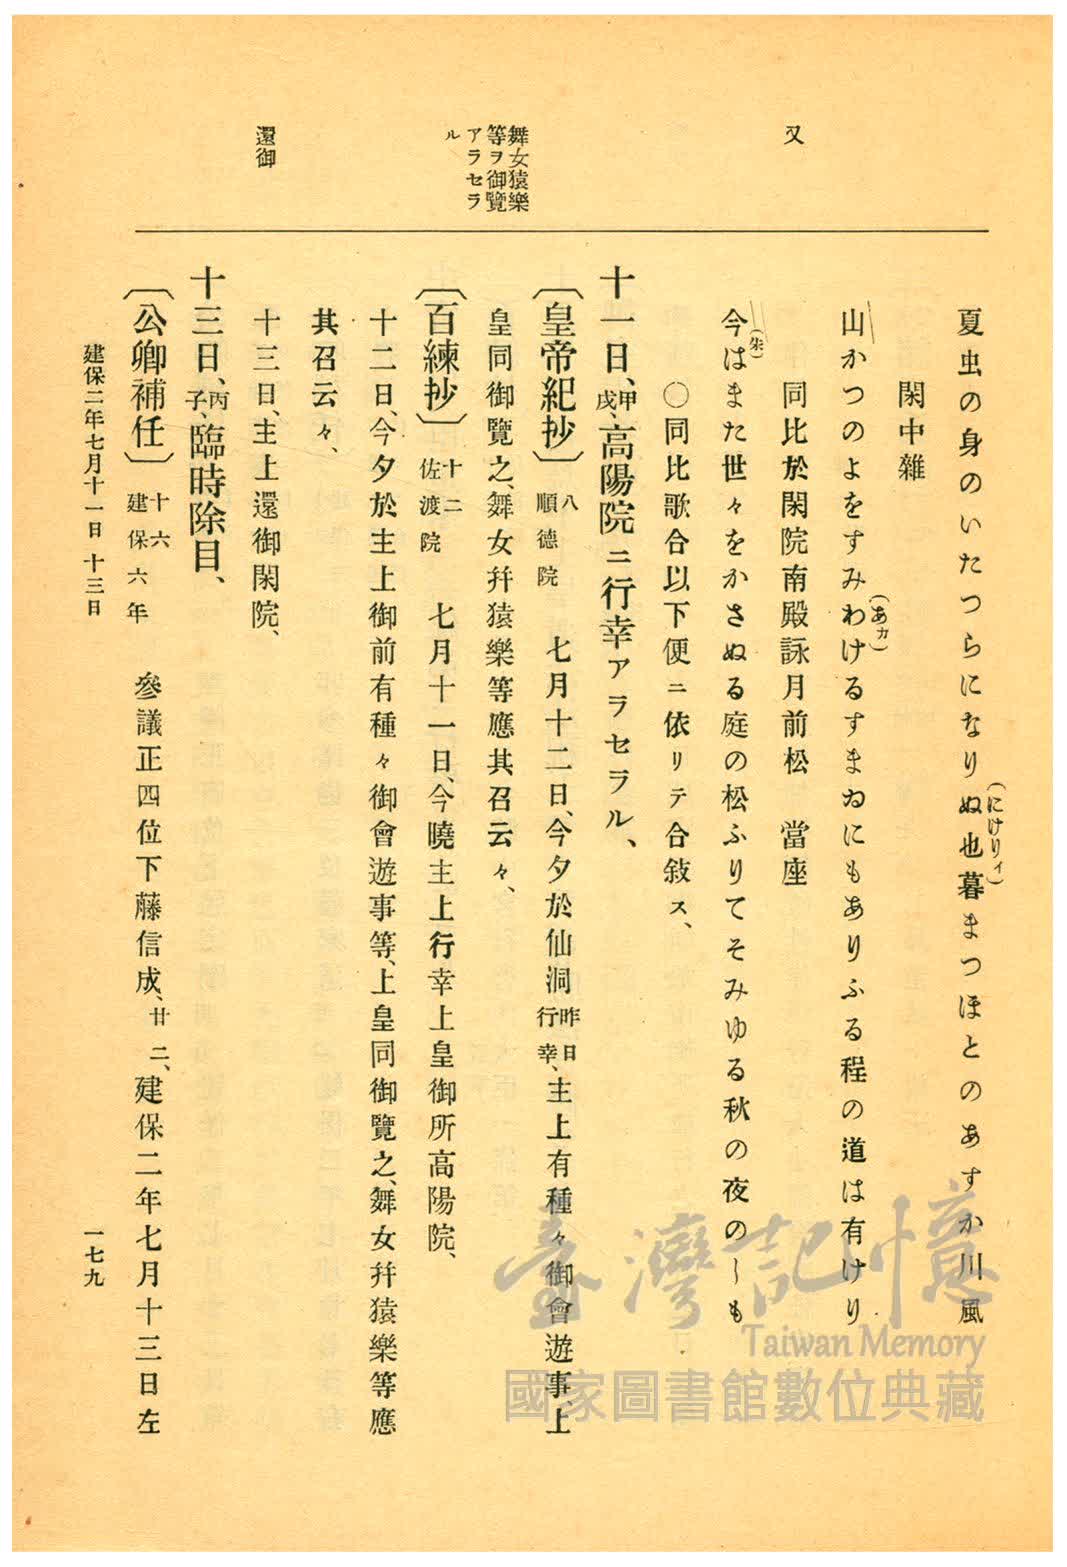 又
舞女猿樂
等ヲ御覽
アラセラ
ル
還御
夏虫の身のいたつらになりぬ也暮まつほとのあすか川風
(にけりィ)
閑中雜
山かつのよをすみわけるすまゐにもありふる程の道は有けり
(あカ)
同比於閑院南殿詠月前松 當座
今はまた世々をかさぬる庭の松ふりてそみゆる秋の夜の〳〵も
(朱)
〇同比歌合以下便ニ依リテ合敍ス、
十一日、甲戌、高陽院ニ行幸アラセラル、
〔皇帝紀抄〕 八順德院 七月十二日、今夕於仙洞昨日行幸、主上有種々御會遊事、上
皇同御覽之、舞女幷猿樂等應其召云々、
〔百練抄〕 十二佐渡院 七月十一日、今曉主上行幸上皇御所高陽院、
十二日、今夕於主上御前有種々御會遊事等、上皇同御覽之、舞女幷猿樂等應
其召云々、
十三日、主上還御閑院、
十三日、丙子、臨時除目、
〔公卿補任〕 十六建保六年 參議正四位下藤信成、廿二、建保二年七月十三日左
建保二年七月十一日 十三日
一七九
臺灣記憶
Taiwan Memory
國家圖書館數位典藏